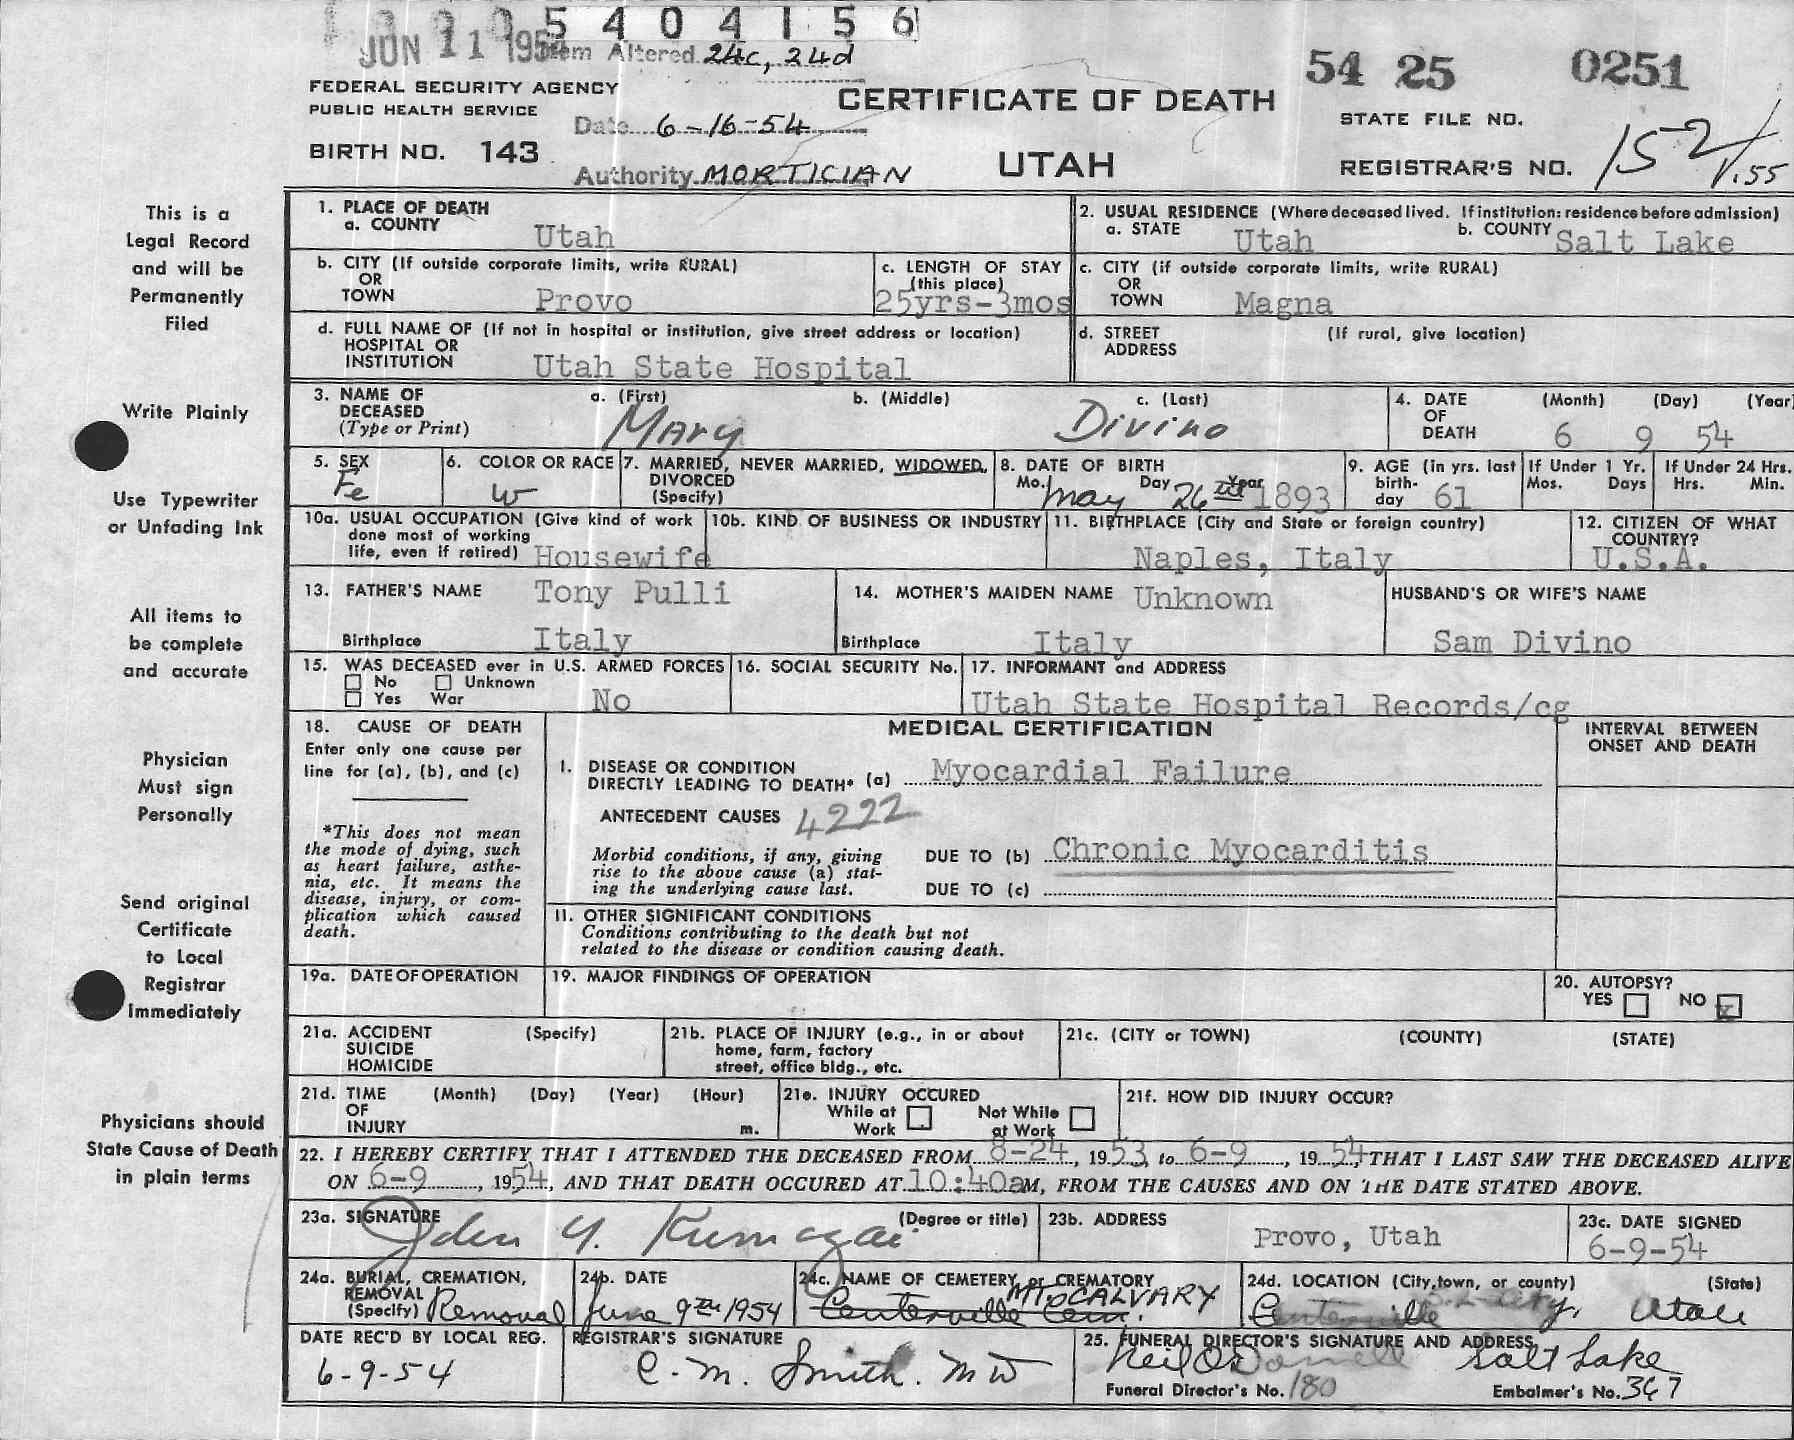 5404156
JUN 11 1954
Item Altered 24c, 24d
54 25 0251
FEDERAL SECURITY AGENCY
PUBLIC HEALTH SERVICE
CERTIFICATE OF DEATH
STATE FILE NO.
Date 6-16-54
BIRTH NO. 143
UTAH
REGISTRAR'S NO. 152
1.55
Authority MORTICIAN
This is a
Legal Record
and will be
Permanently
Filed
Write Plainly
Use Typewriter
or Unfading Ink
All items to
be complete
and accurate
Physician
Must sign
Personally
Send original
Certificate
to Local
Registrar
Immediately
Physicians should
State Cause of Death
in plain terms
1. PLACE OF DEATH
a. COUNTY Utah
2. USUAL RESIDENCE (Where deceased lived. If institution: residence before admission)
a. STATE Utah b. COUNTY Salt Lake
b. CITY (If outside corporate limits, write RURAL)
OR
TOWN Provo
c. LENGTH OF STAY
(this place)
25yrs-3mos
c. CITY (if outside corporate limits, write RURAL)
OR
TOWN Magna
d. FULL NAME OF (If not in hospital or institution, give street address or location)
HOSPITAL OR
INSTITUTION Utah State Hospital
d. STREET (If rural, give location)
ADDRESS
3. NAME OF a. (First) b. (Middle) c. (Last)
DECEASED
(Type or Print) Mary Divino
4. DATE (Month) (Day) (Year)
OF
DEATH 6 9 54
5. SEX
Fe
6. COLOR OR RACE
W
7. MARRIED, NEVER MARRIED, WIDOWED,
DIVORCED
(Specify)
8. DATE OF BIRTH
Mo. Day Year
May 26 1893
9. AGE (in yrs. last
birth-
day 61
If Under 1 Yr.
Mos. Days
If Under 24 Hrs.
Hrs. Min.
10a. USUAL OCCUPATION (Give kind of work
done most of working
life, even if retired) Housewife
10b. KIND OF BUSINESS OR INDUSTRY
11. BIRTHPLACE (City and State or foreign country)
Naples, Italy
12. CITIZEN OF WHAT
COUNTRY?
U.S.A.
13. FATHER'S NAME Tony Pulli
Birthplace Italy
14. MOTHER'S MAIDEN NAME Unknown
Birthplace Italy
HUSBAND'S OR WIFE'S NAME
Sam Divino
15. WAS DECEASED ever in U.S. ARMED FORCES
No Unknown
Yes War No
16. SOCIAL SECURITY No.
17. INFORMANT and ADDRESS
Utah State Hospital Records/cg
18. CAUSE OF DEATH
Enter only one cause per
line for (a), (b), and (c)
*This does not mean
the mode of dying, such
as heart failure, asthe-
nia, etc. It means the
disease, injury, or com-
plication which caused
death.
MEDICAL CERTIFICATION
INTERVAL BETWEEN
ONSET AND DEATH
I. DISEASE OR CONDITION
DIRECTLY LEADING TO DEATH* (a) Myocardial Failure
ANTECEDENT CAUSES 4222
Morbid conditions, if any, giving
rise to the above cause (a) stat-
ing the underlying cause last.
DUE TO (b) Chronic Myocarditis
DUE TO (c)
11. OTHER SIGNIFICANT CONDITIONS
Conditions contributing to the death but not
related to the disease or condition causing death.
19a. DATE OF OPERATION
19. MAJOR FINDINGS OF OPERATION
20. AUTOPSY?
YES NO X
21a. ACCIDENT (Specify)
SUICIDE
HOMICIDE
21b. PLACE OF INJURY (e.g., in or about
home, farm, factory
street, office bldg., etc.
21c. (CITY or TOWN) (COUNTY) (STATE)
21d. TIME (Month) (Day) (Year) (Hour)
OF
INJURY m.
21e. INJURY OCCURED
While at Not While
Work at Work
21f. HOW DID INJURY OCCUR?
22. I HEREBY CERTIFY THAT I ATTENDED THE DECEASED FROM 8-24, 1953, to 6-9, 1954, THAT I LAST SAW THE DECEASED ALIVE
ON 6-9, 1954, AND THAT DEATH OCCURED AT 10:40aM, FROM THE CAUSES AND ON THE DATE STATED ABOVE.
23a. SIGNATURE (Degree or title)
Y. Kumagai
23b. ADDRESS
Provo, Utah
23c. DATE SIGNED
6-9-54
24a. BURIAL, CREMATION,
REMOVAL
(Specify) Removal
24b. DATE
June 9th 1954
24c. NAME OF CEMETERY or CREMATORY
MT CALVARY
Centerville Cem.
24d. LOCATION (City, town, or county) (State)
Centerville City, Utah
DATE REC'D BY LOCAL REG.
6-9-54
REGISTRAR'S SIGNATURE
C. M. Smith. MD
25. FUNERAL DIRECTOR'S SIGNATURE AND ADDRESS
Neil O'Donnell Salt Lake
Funeral Director's No. 180 Embalmer's No. 367